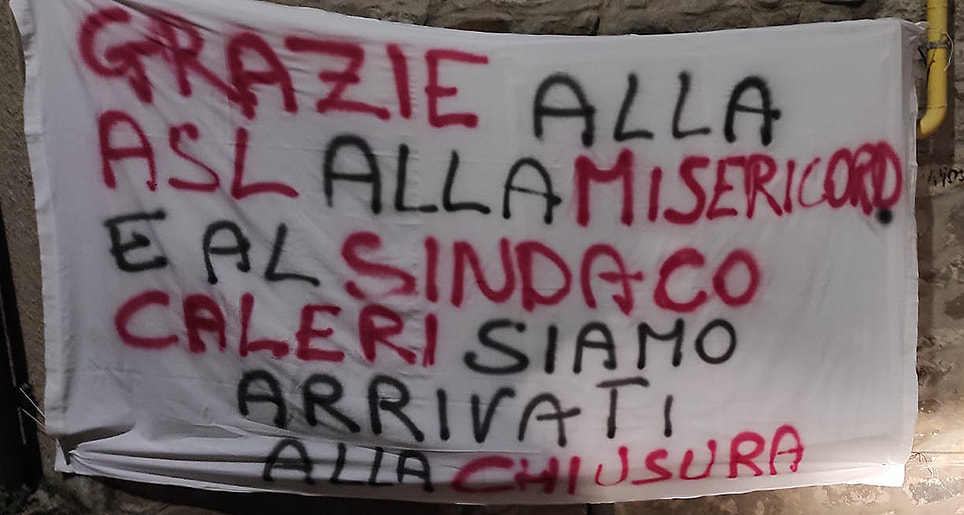 GRAZIE ALLA
ASL ALLA MISERICORD.
E AL SINDACO
CALERI SIAMO
ARRIVATI
ALLA CHIUSURA